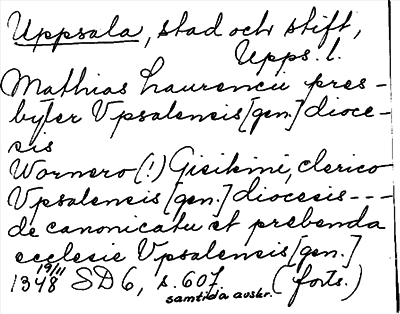 Uppsala, stad och stift,
Upps. l.
Mathias Laurencii pres-
byter Vpsalensis [gen.] dioce-
sis
Wornero (!) Gisikini, clerico
Vpsalensis [gen.] diocesis ---
de canonicatu et prebenda
ecclesie Vpsalensis [gen.]
1348 19/11 SD 6, s. 607. (forts.)
samtida avskr.